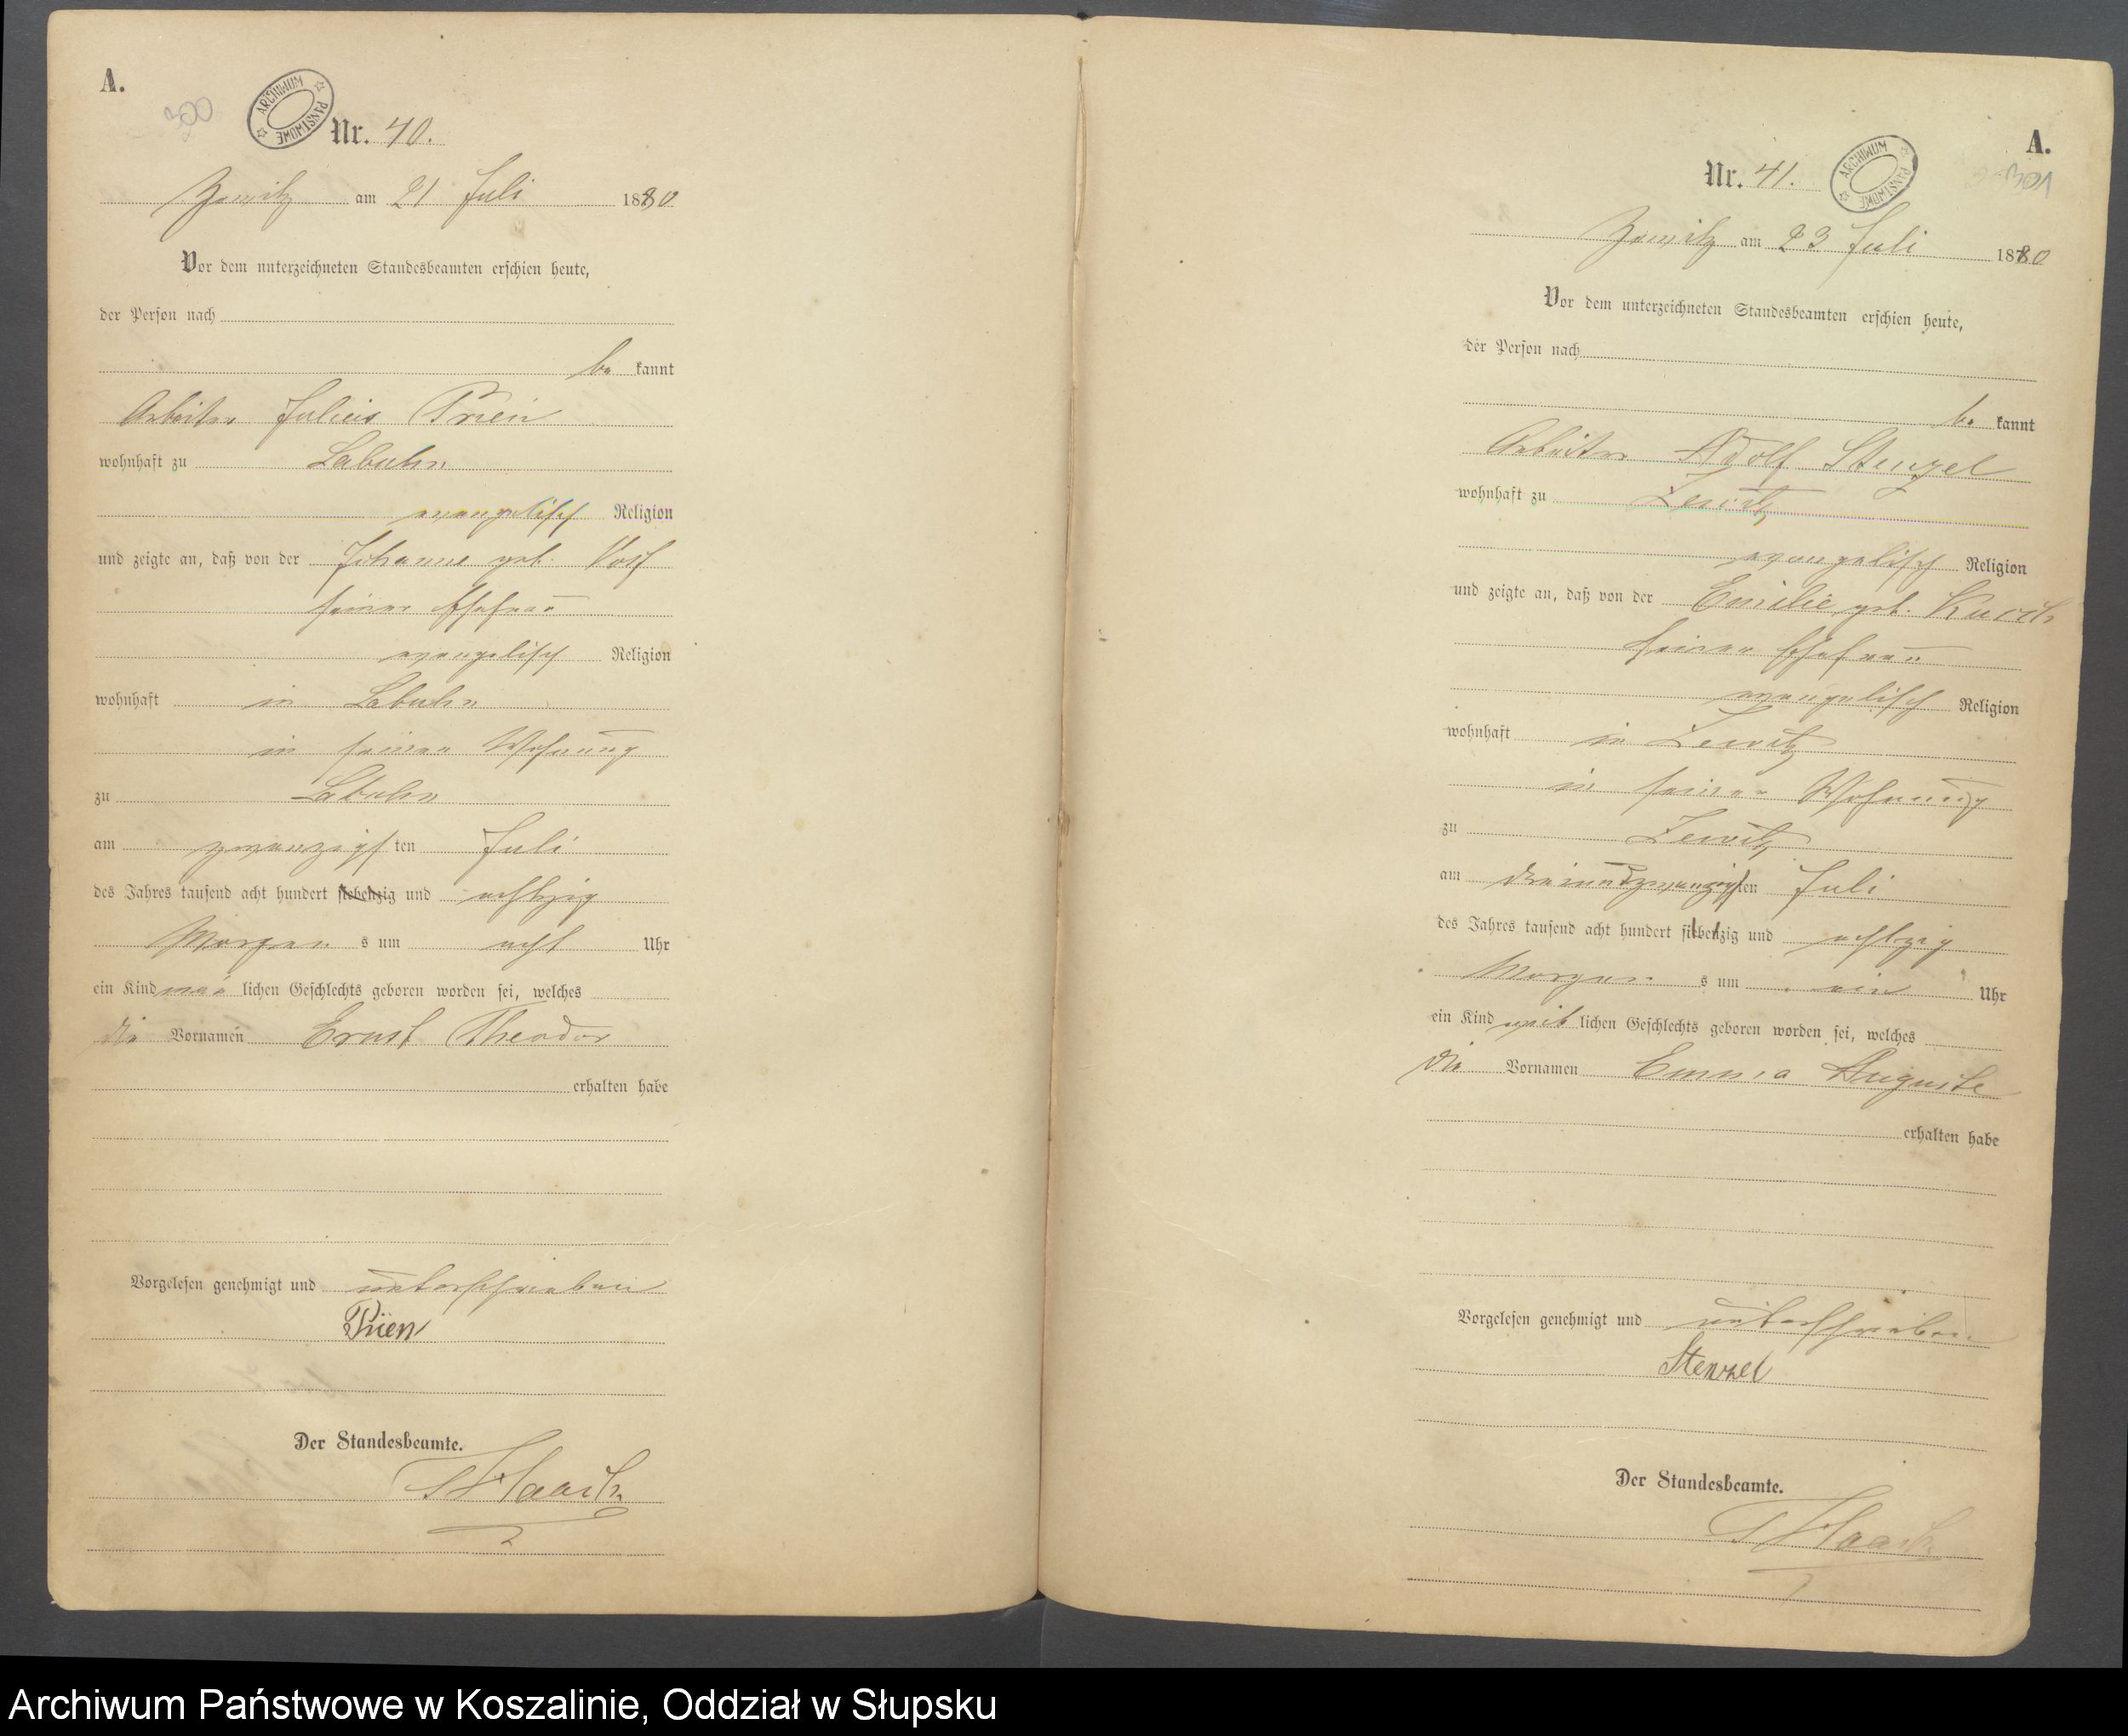 A.
300
ARCHIWUM PAŃSTWOWE
Nr. 40.
am 21 Juli 1880
Vor dem unterzeichneten Standesbeamten erschien heute,
der Person nach
be kannt
Arbeiter Julius Prien
wohnhaft zu Labuhn
evangelisch Religion
und zeigte an, daß von der Johanne geb.
seiner Ehefrau
evangelisch Religion
wohnhaft in Labuhn
in seiner Wohnung
zu Labuhn
am zwanzigsten Juli
des Jahres tausend acht hundert siebenzig und achtzig
Morgen s um acht Uhr
ein Kind män lichen Geschlechts geboren worden sei, welches
die Vornamen Ernst Theodor
erhalten habe
Vorgelesen genehmigt und unterschrieben
Prien
Der Standesbeamte.
A.
301
ARCHIWUM PAŃSTWOWE
Nr. 41.
am 23 Juli 1880
Vor dem unterzeichneten Standesbeamten erschien heute,
der Person nach
be kannt
Arbeiter Adolf Stenzel
wohnhaft zu Zewitz
evangelisch Religion
und zeigte an, daß von der Emilie geb.
seiner Ehefrau
evangelisch Religion
wohnhaft in Zewitz
in seiner Wohnung
zu Zewitz
am dreiundzwanzigsten Juli
des Jahres tausend acht hundert siebenzig und achtzig
Morgen s um ein Uhr
ein Kind weib lichen Geschlechts geboren worden sei, welches
die Vornamen Emma Auguste
erhalten habe
Vorgelesen genehmigt und unterschrieben
Stenzel
Der Standesbeamte.
Archiwum Państwowe w Koszalinie, Oddział w Słupsku